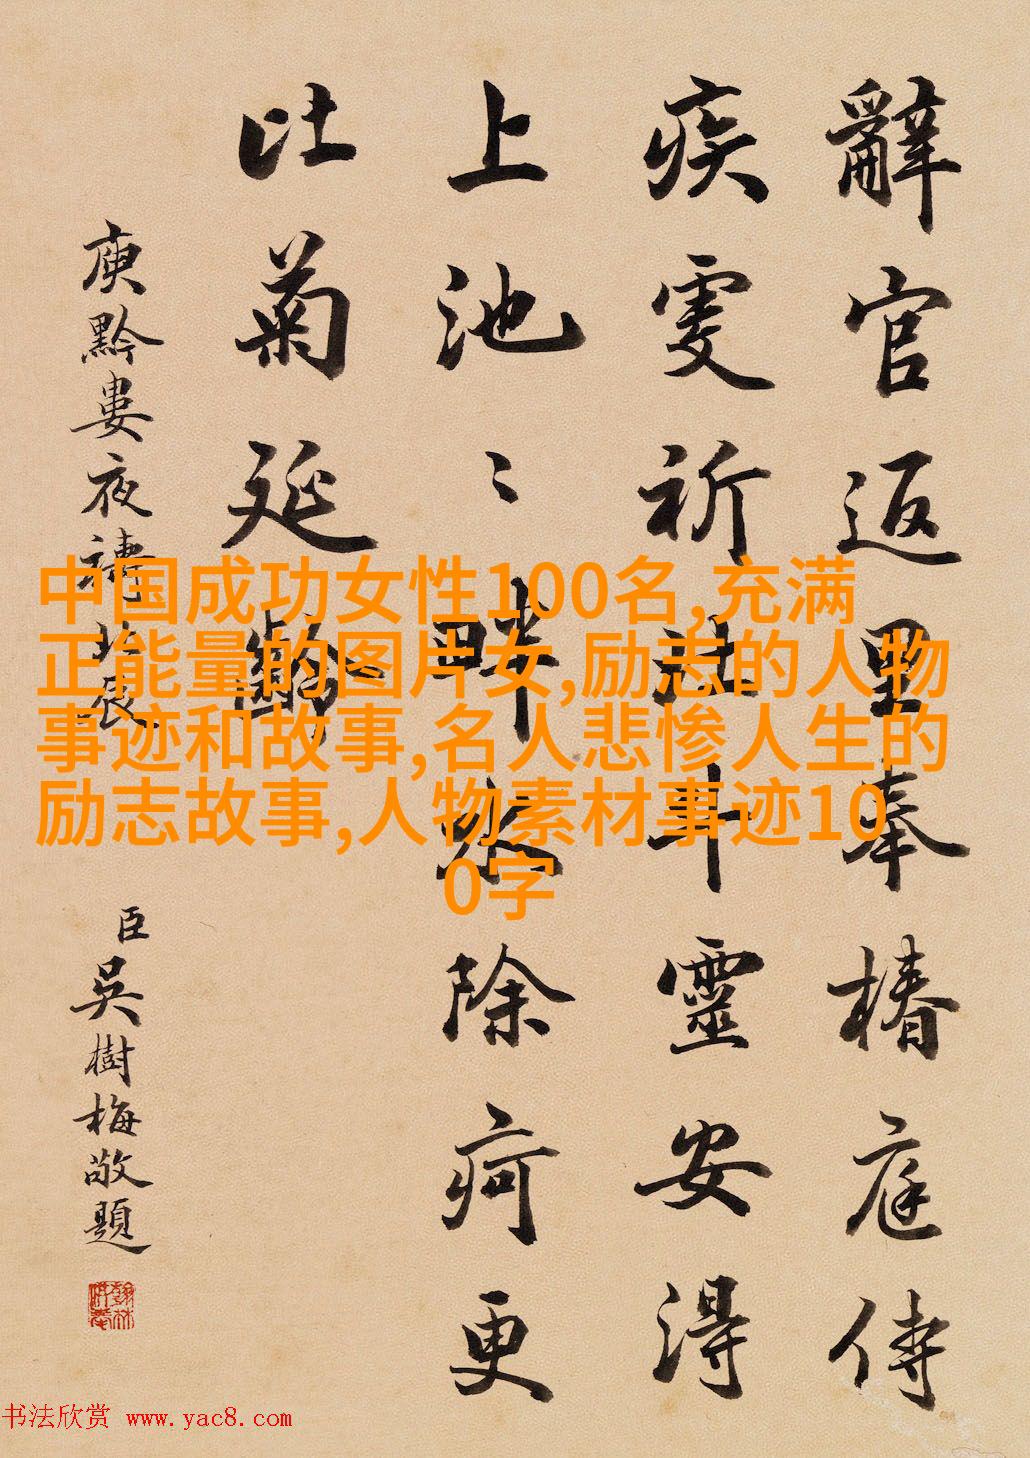 辭官返里奉椿庭侍
疾雯祈禱斗靈安得
上池〻畔水除疴更
吐菊延齡
庾黔婁夜禱北辰
臣吳樹梅敬題
中国成功女性100名,充满
正能量的图片女,励志的人物
事迹和故事,名人悲惨人生的
励志故事,人物素材事迹10
0字
书法欣赏 www.yac8.com